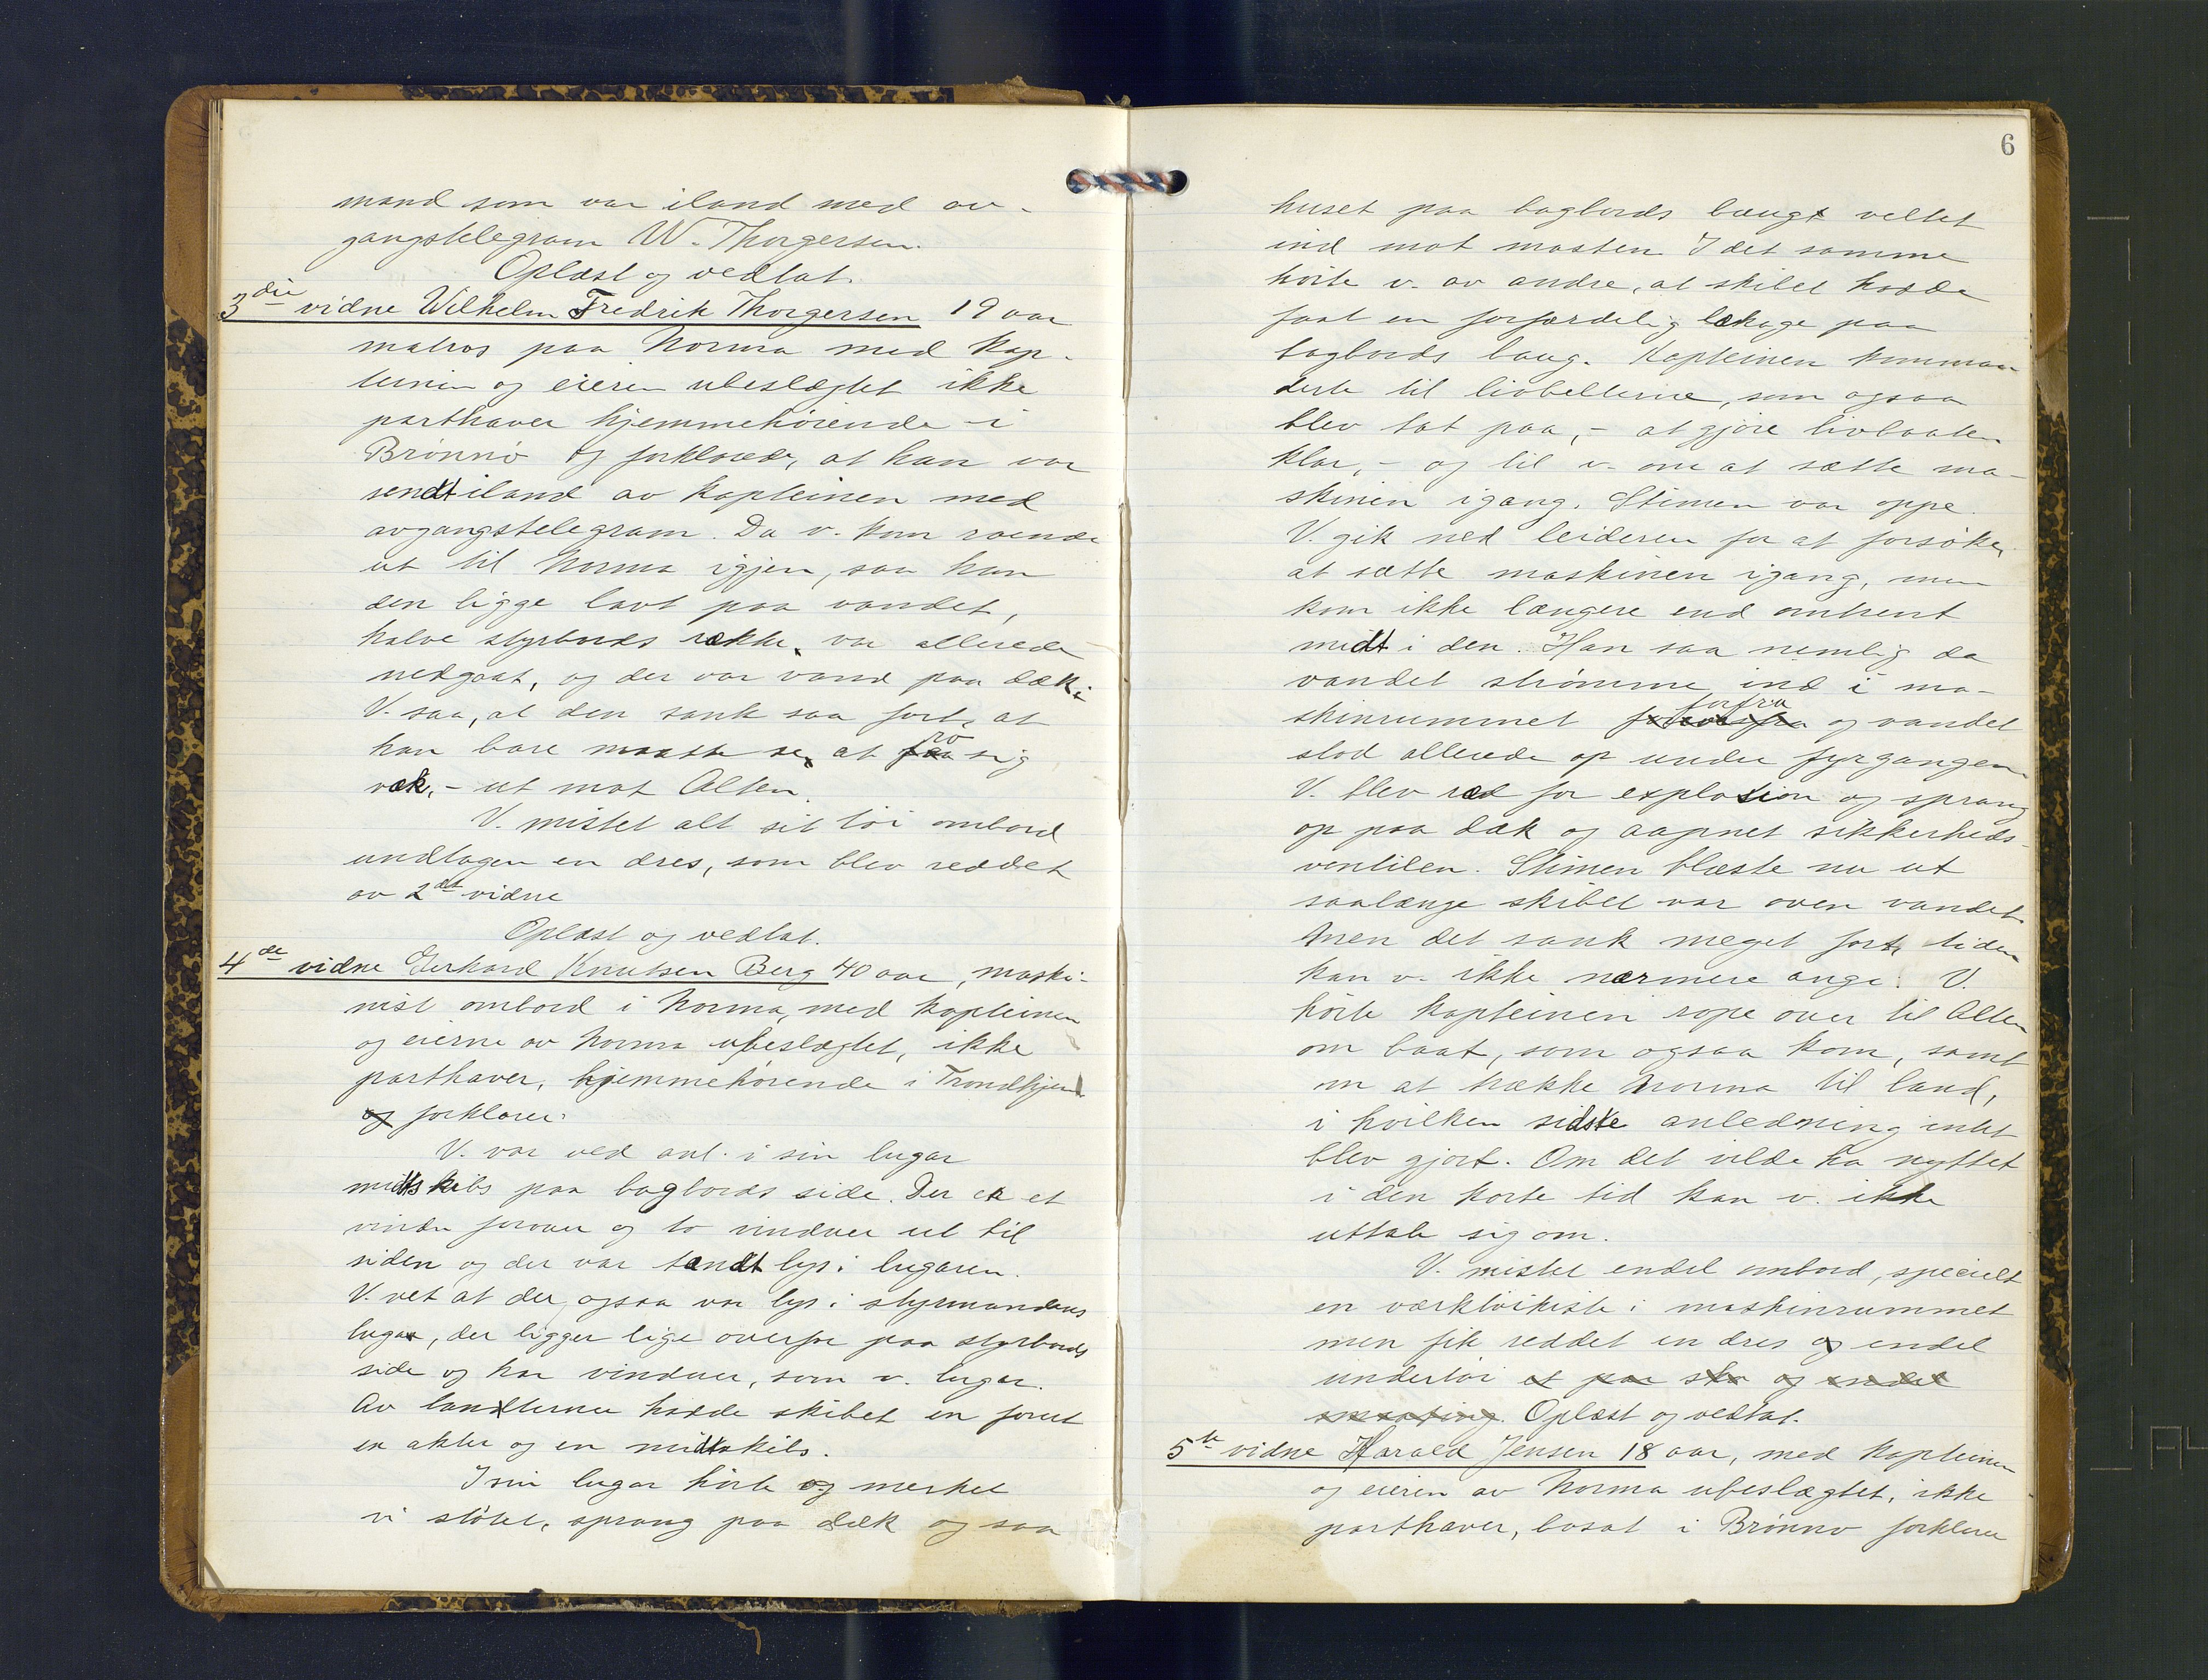 mand som var iland med av-
gangstelegram W. Thorgersen.
Oplæst og vedtat.
3die vidne Wilhelm Fredrik Thorgersen 19 aar
matros paa Norma med kap-
teinin og eieren ubeslægtet ikke
parthaver hjemmehörende i
Brönnö og forklarer, at han var
sendt iland av kapteinen med
avgangstelegram. Da v. kom roende
ut til Norma igjen, saa han
den ligge lavt paa vandet,
halve styrbords række var allerede
nedgaat, og der var vand paa dæk.
V. saa, at den sank saa fort, at
han bare maatte se at ro sig
væk, - ut mot Alten.
V. mistet alt sit töi ombord
undtagen en dres, som blev reddet
av 2det vidne
Oplæst og vedtat.
4de vidne Gerhard Knutsen Berg 40 aar, maski-
nist ombord i Norma, med kapteinen
og eierne av Norma ubeslægtet, ikke
parthaver, hjemmehörende i Trondhjem
og forklarer:
V. var ved anl. i sin lugar
midtskibs paa bagbords side. Der er et
vindu forover og to vinduer ut til
siden og der var tændt lys i lugaren.
V. vet at der ogsaa var lys i styrmandens
lugar, der ligger lige overfor paa styrbords
side og har vinduer, som v. lugar.
Av lanternene hadde skibet en forut
en akter og en midtskibs.
I sin lugar hörte og merket
v. stötet, sprang paa dæk og saa
6
huset paa bagbords baug veltet
ind mot masten. I det samme
hörte v. av andre, at skibet hadde
faat en forfærdelig lækage paa
bagbords baug. Kapteinen komman-
derte til livbelterne, som ogsaa
blev tat paa, - at gjöre livbaaten
klar, - og til v. om at sætte ma-
skinen igang. Stimen var oppe.
V. gik ned leideren for at forsöke,
at sætte maskinen igang, men
kom ikke længere end omtrent
midt i den. Han saa nemlig da
vandet strömme ind i ma-
skinrummet forfra og vandet
stod allerede op under fyrgangen.
V. blev ræd for explosion og sprang
op paa dæk og aapnet sikkerheds-
ventilen. Stimen blæste nu ut
saalænge skibet var oven vandet.
Men det sank meget fort, tiden
kan v. ikke nærmere angi. V.
hörte kapteinen rope over til Alten
om baat, som ogsaa kom, samt
om at trække Norma til land,
i hvilken sidste anledning intet
blev gjort. Om det vilde ha nyttet
i den korte tid kan v. ikke
uttale sig om.
V. mistet endel ombord, specielt
en værktöikiste i maskinrummet
men fik reddet en dres og endel
undertöi et par sko og endel
Oplæst og vedtat.
5te vidne Harald Jensen 18 aar, med kapteinen
og eieren av Norma ubeslægtet, ikke
parthaver, bosat i Brönnö forklarer